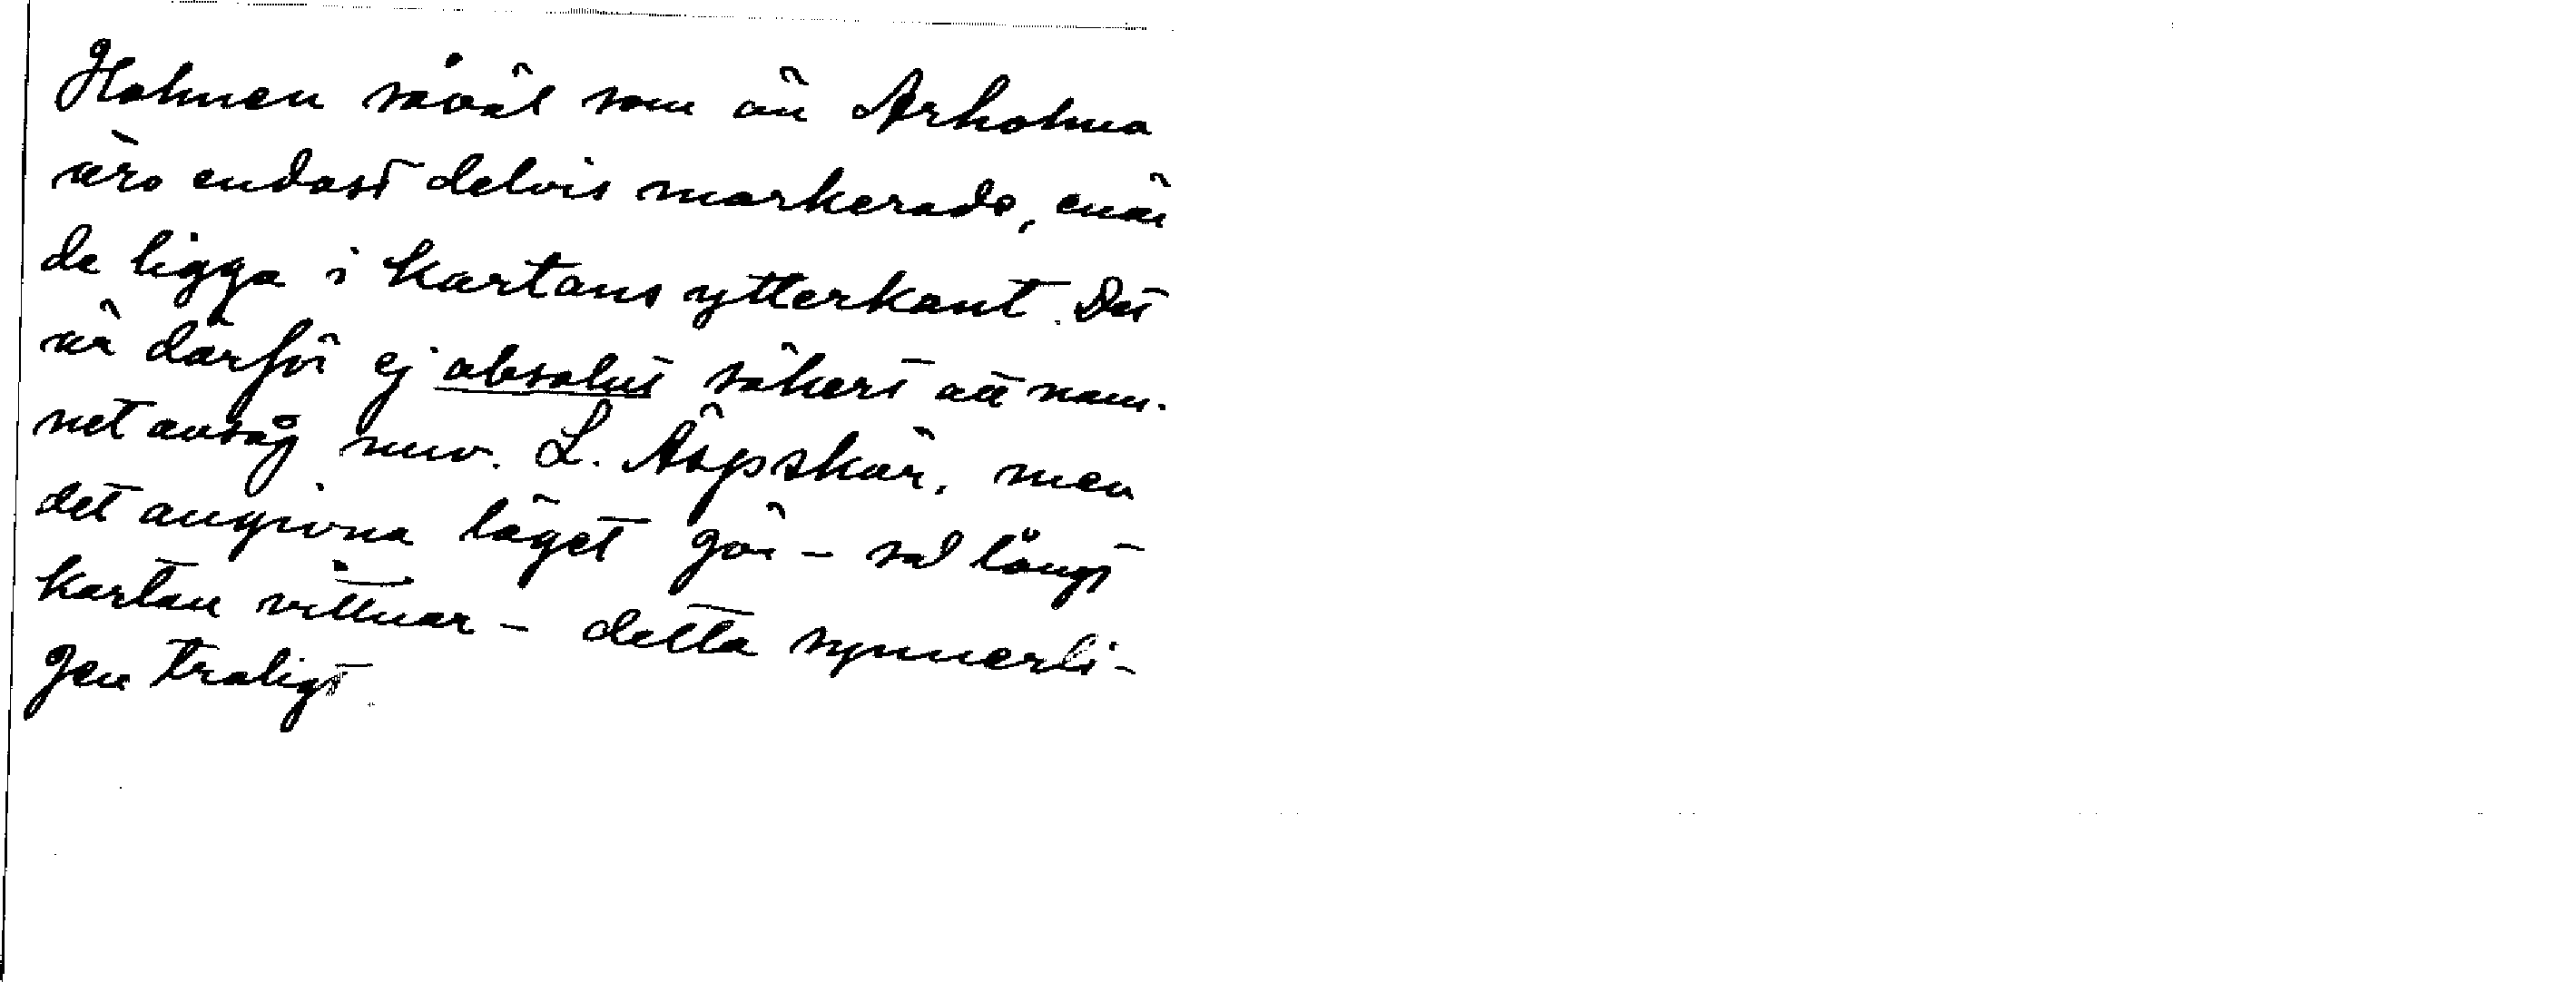 Holmen såväl som ön Arholma
äro endast delvis markerade, enär
de ligga i kartans ytterkant. Det
är därför ej absolut säkert att nam-
net avsåg nuv. L. Äspskär, men
det angivna läget gör – vad långt
kartan vittnar – detta synnerli-
gen troligt.